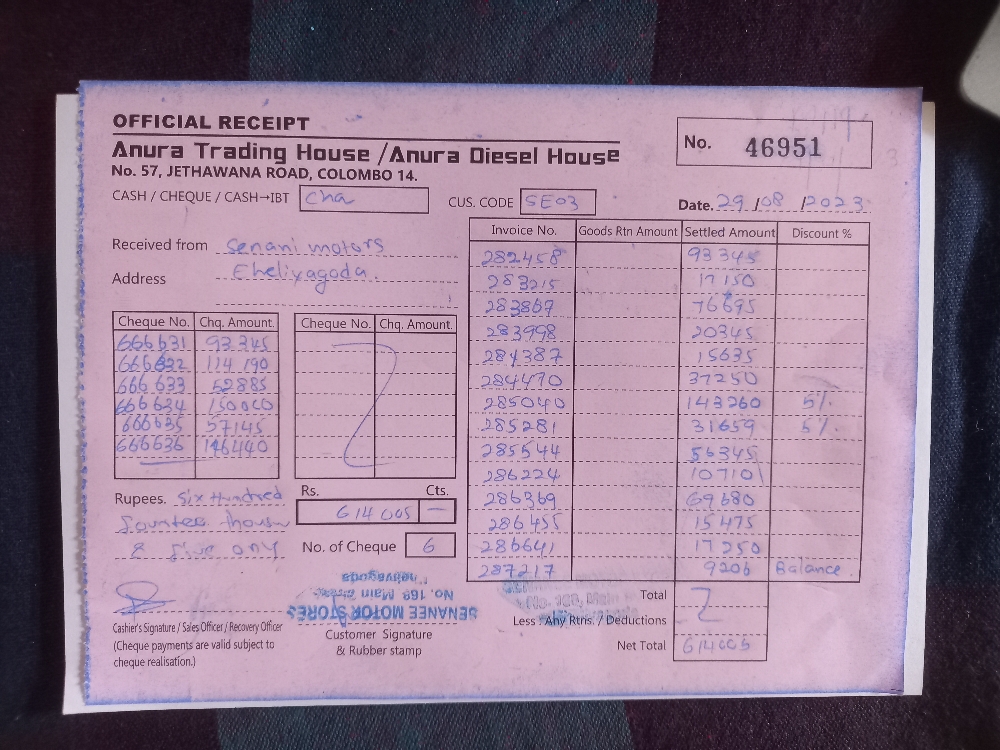 OFFICIAL RECEIPT
Anura Trading House /Anura Diesel House
No. 57, JETHAWANA ROAD, COLOMBO 14.
No. 46951
CASH / CHEQUE / CASH→IBT Cha
CUS. CODE SE03
Date. 29 /08 /2023
Received from Senani motors
Address Eheliyagoda.
Cheque No. Chq. Amount.
666631 93 345
666632 114 190
666 633 52885
666634 150000
666635 57145
666636 146440
Cheque No. Chq. Amount.
Rupees. Six Hundred
& five only
Rs. Cts.
614 005 —
No. of Cheque 6
Invoice No. Goods Rtn Amount Settled Amount Discount %
282458 93 345
283215 17 150
283867 76695
283998 20345
284387 15635
284470 37250
285040 143260 5%
285281 31659 5%
285544 56345
286224 10710
286369 69 680
286455 15 475
286641 17 250
287217 9206 Balance.
Total
Less : Any Rtns. / Deductions
Net Total 614005
Cashier's Signature / Sales Officer / Recovery Officer
(Cheque payments are valid subject to
cheque realisation.)
SENANEE MOTOR STORES
No. 168, Main Street,
Customer Signature
& Rubber stamp